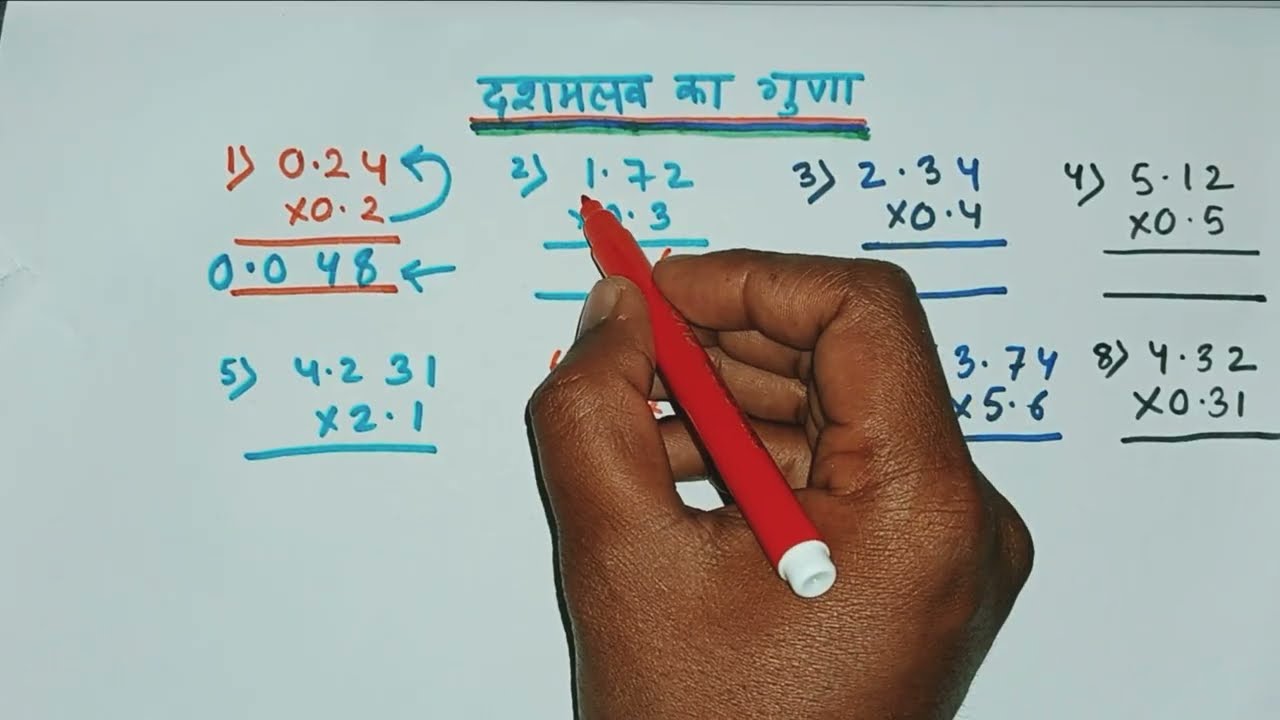 दशमलव का गुणा
1) 0.24
x0.2
0.048
2) 1.72
x0.3
3) 2.34
x0.4
4) 5.12
x0.5
5) 4.231
x2.1
3.74
x5.6
8) 4.32
x0.31